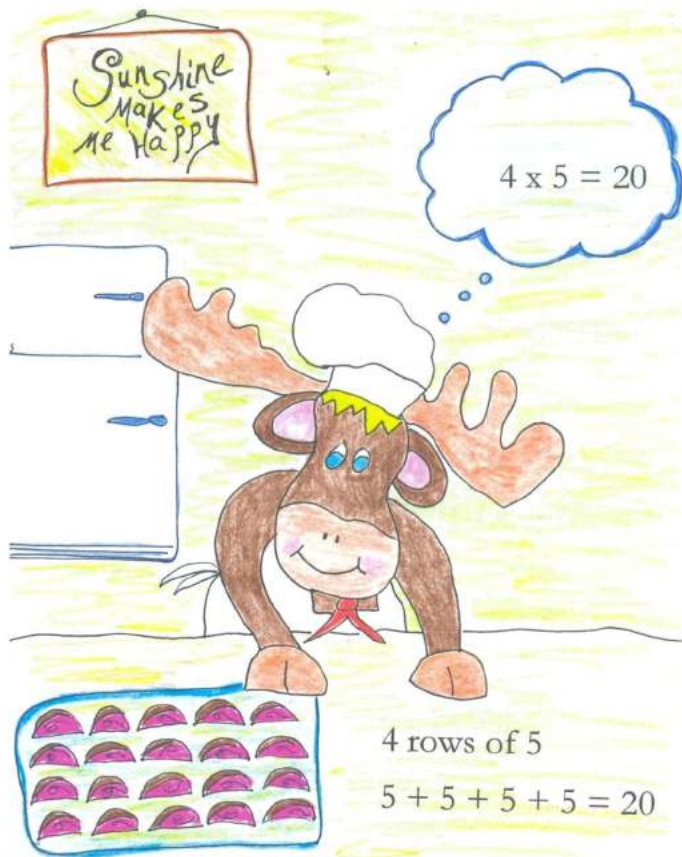 Sunshine
Makes
Me Happy
4 x 5 = 20
4 rows of 5
5 + 5 + 5 + 5 = 20